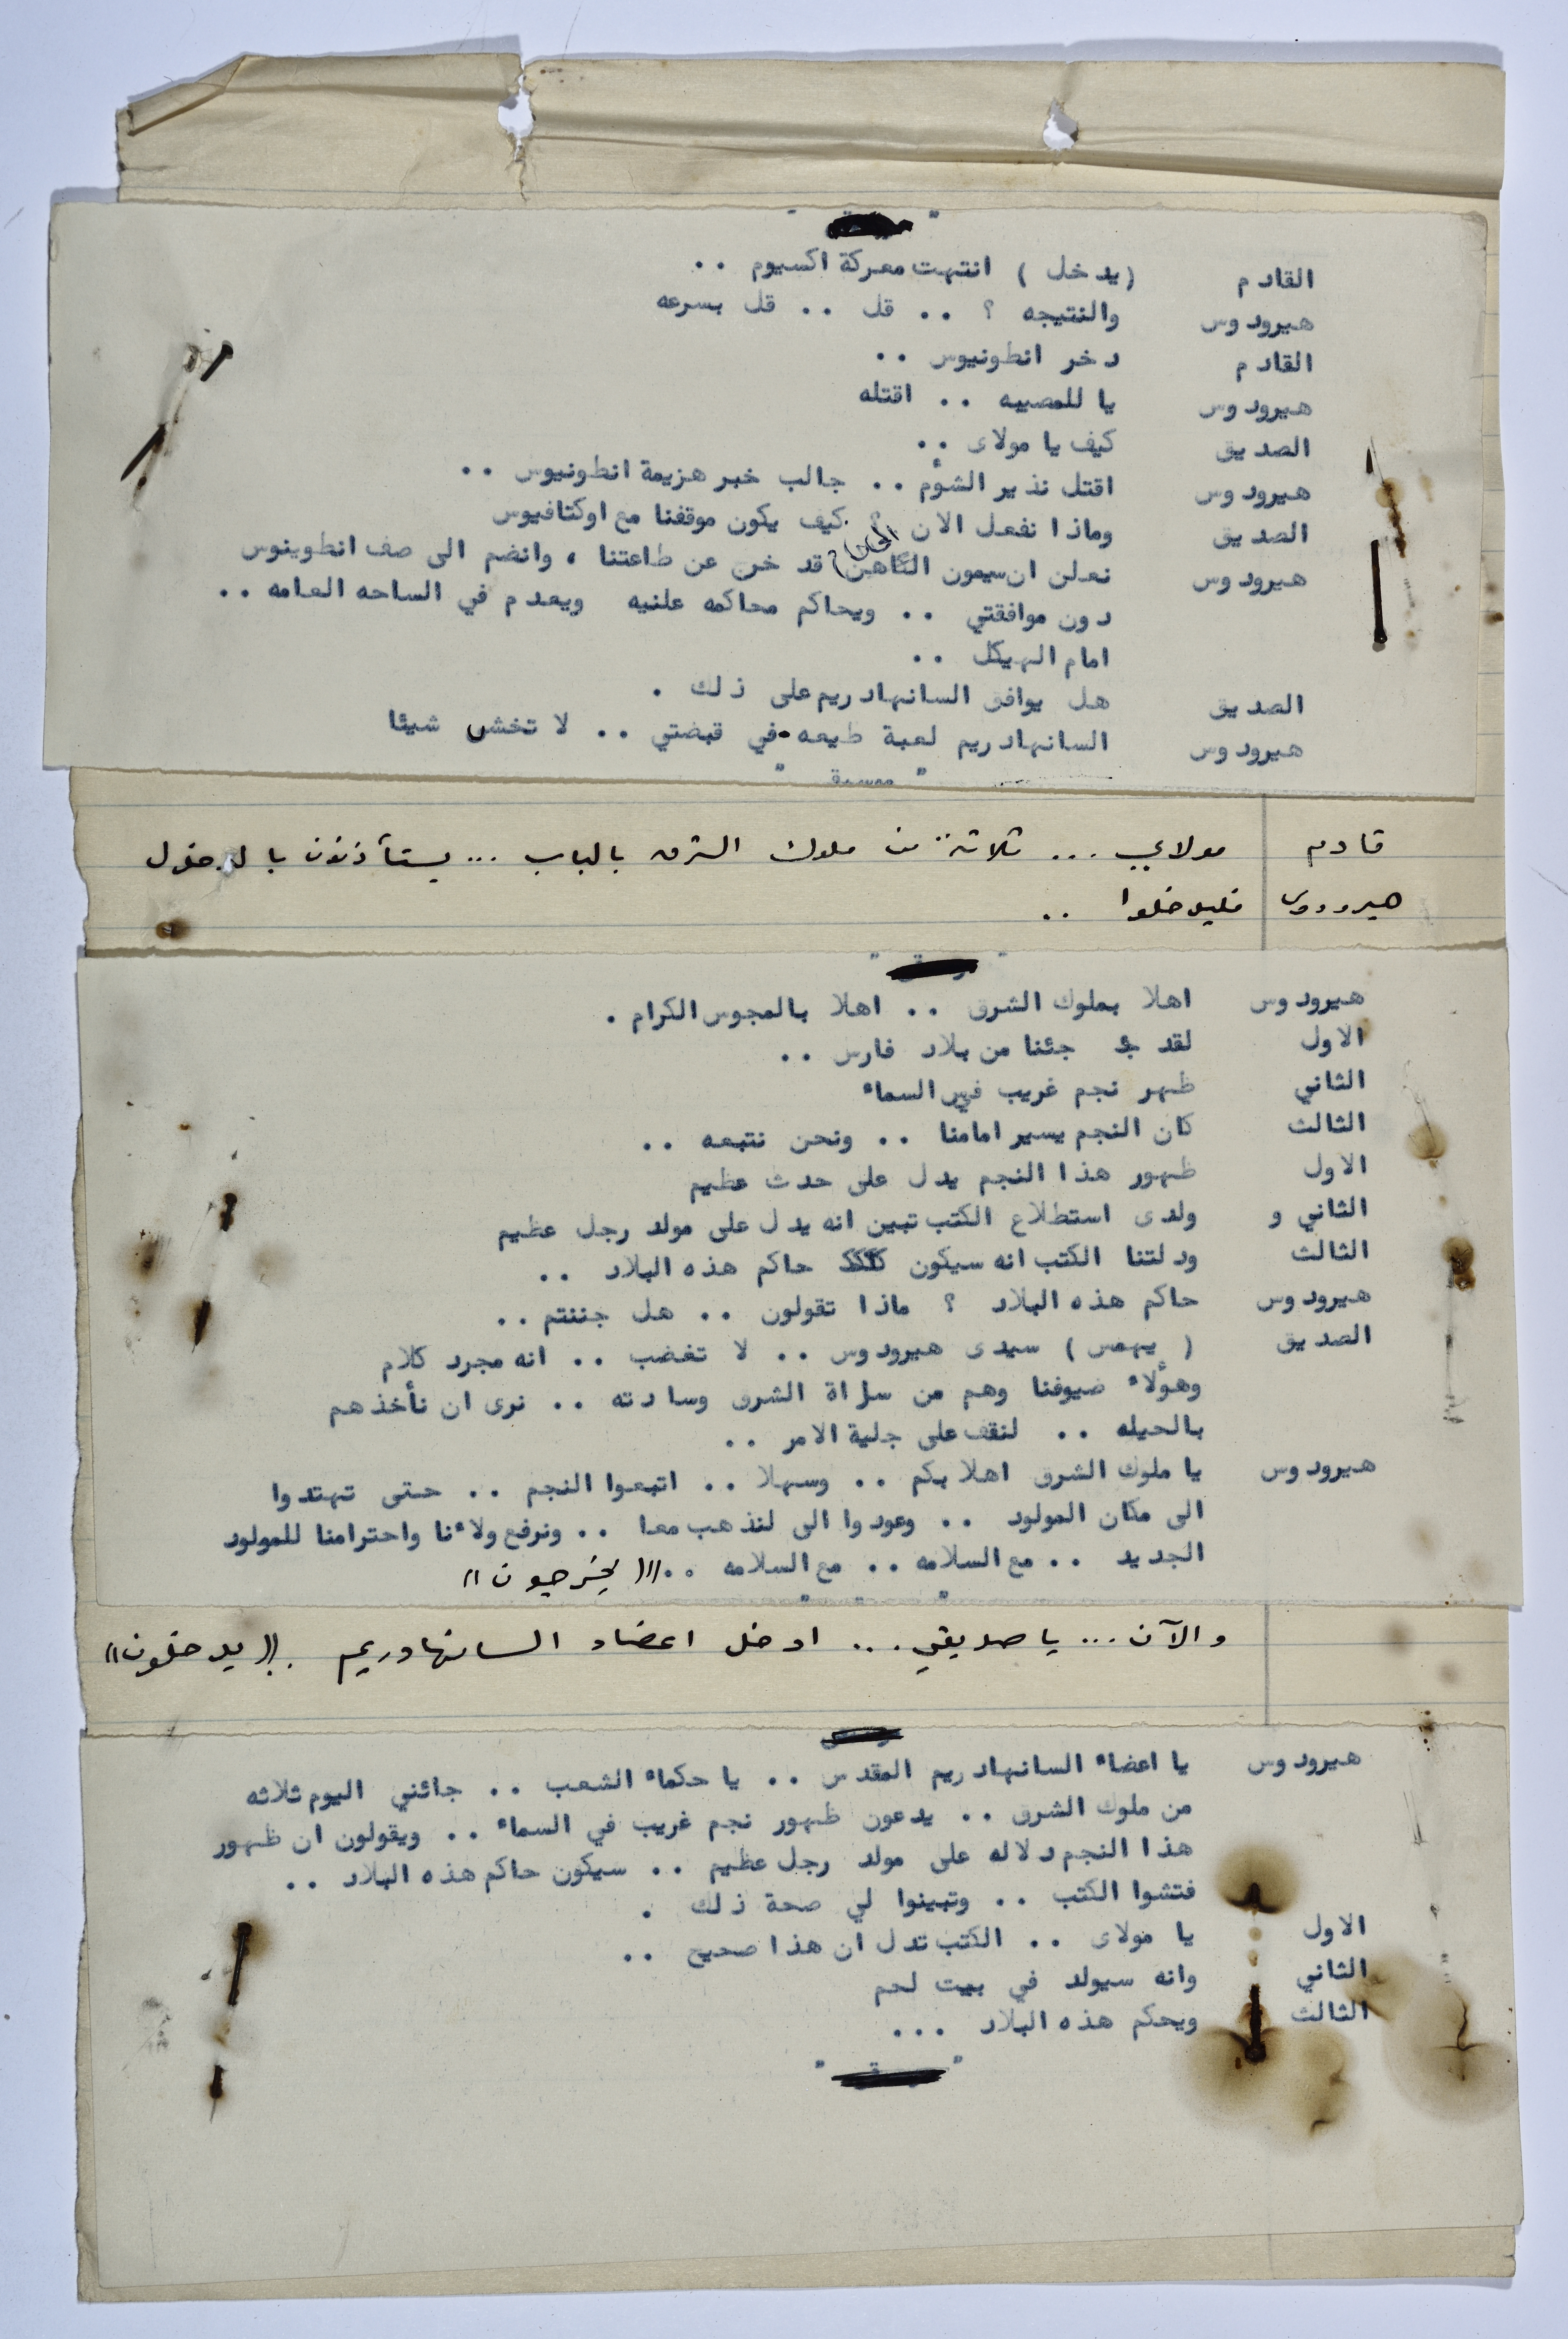 القادم (يدخل) انتهت معركة اكسيوم ..
هيرودوس والنتيجه ؟ .. قل .. قل بسرعه
القادم دخر انطونيوس ..
هيرودوس يا للمصيبه .. اقتله
الصديق كيف يا مولاى ..
هيرودوس اقتل نذير الشؤم .. جالب خبر هزيمة انطونيوس ..
الصديق وماذا نفعل الان ؟ كيف يكون موقفنا مع اوكتافيوس
هيرودوس نعلن ان سيمون الكاهن قد خرج عن طاعتنا ، وانضم الى صف انطوينوس
دون موافقتي .. ويحاكم محاكمه علنيه ويعدم في الساحه العامه ..
امام الهيكل ..
الصديق هل يوافق السانهادريم على ذلك .
هيرودوس السانهادريم لعبة طيعه في قبضتي .. لا تخشى شيئا
قادم مولاي ... ثلاثة من ملوك الشرق بالباب ... يستأذنون بالدخول
هيرودوس فليدخلوا ..
هيرودوس اهلا بملوك الشرق .. اهلا بالمجوس الكرام .
الاول لقد جئنا من بلاد فارس ..
الثاني ظهر نجم غريب في السماء
الثالث كان النجم يسير امامنا .. ونحن نتبعه ..
الاول ظهور هذا النجم يدل على حدث عظيم
الثاني و ولدى استطلاع الكتب تبين انه يدل على مولد رجل عظيم
الثالث ودلتنا الكتب انه سيكون حاكم هذه البلاد ..
هيرودوس حاكم هذه البلاد ؟ ماذا تقولون .. هل جننتم ..
الصديق ( يهمس ) سيدى هيرودوس .. لا تغضب .. انه مجرد كلام
وهؤلاء ضيوفنا وهم من سراة الشرق وسادته .. نرى ان نأخذهم
بالحيله .. لنقف على جلية الامر ..
هيرودوس يا ملوك الشرق اهلا بكم .. وسهلا .. اتبعوا النجم .. حتى تهتدوا
الى مكان المولود .. وعودوا الى لنذهب معا .. ونرفع ولاءنا واحترامنا للمولود
الجديد .. مع السلامه .. مع السلامه .. (( يخرجون ))
والآن ... يا صديقي ... ادخل اعضاء السانهادريم .. (( يدخلون ))
هيرودوس يا اعضاء السانهادريم المقدس .. يا حكماء الشعب .. جائني اليوم ثلاثه
من ملوك الشرق .. يدعون ظهور نجم غريب في السماء .. ويقولون ان ظهور
هذا النجم دلاله على مولد رجل عظيم .. سيكون حاكم هذه البلاد ..
فتشوا الكتب .. وتبينوا لي صحة ذلك .
الاول يا مولاى .. الكتب تدل ان هذا صحيح ..
الثاني وانه سيولد في بيت لحم
الثالث ويحكم هذه البلاد ...